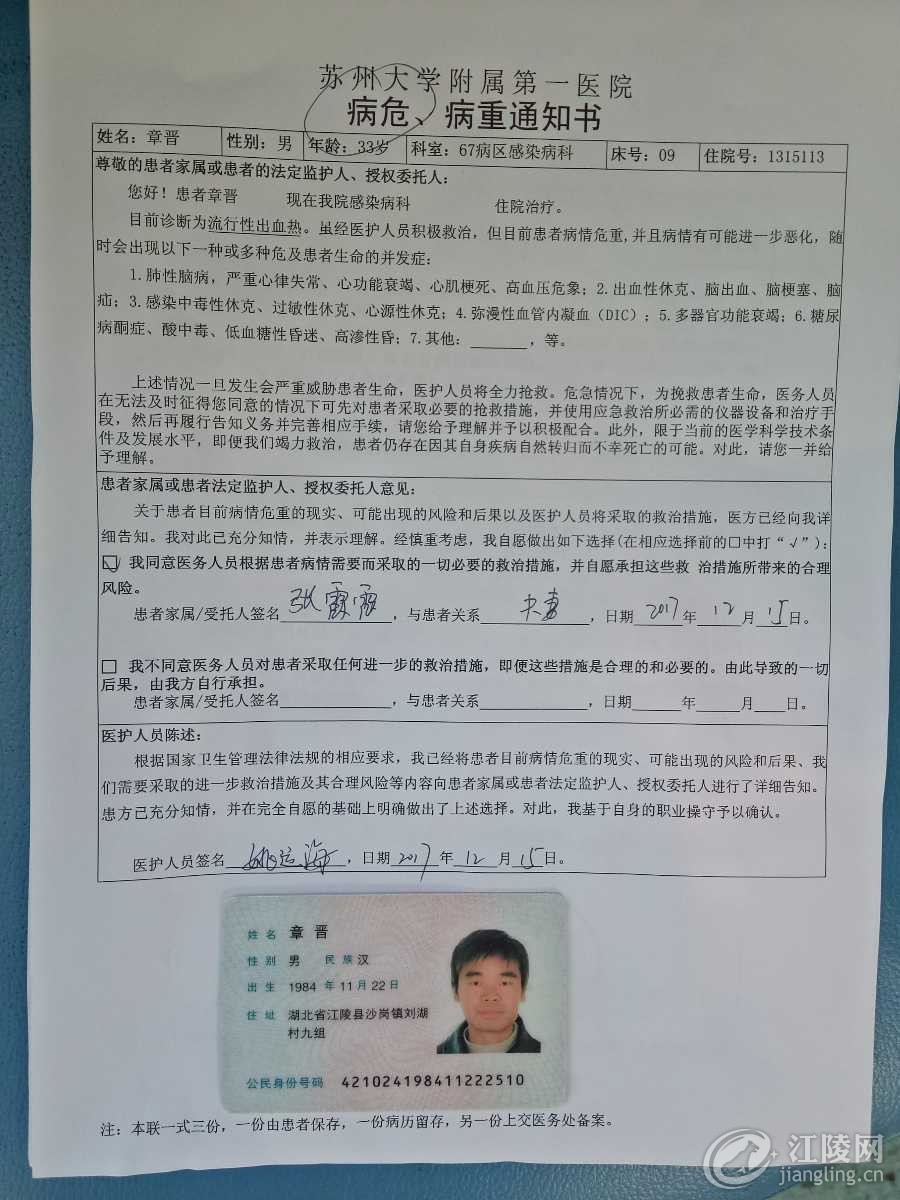 苏州大学附属第一医院
病危、病重通知书
姓名：章晋 性别：男 年龄：33岁 科室：67病区感染病科 床号：09 住院号：1315113
尊敬的患者家属或患者的法定监护人、授权委托人：
您好！患者章晋 现在我院感染病科 住院治疗。
目前诊断为流行性出血热。虽经医护人员积极救治，但目前患者病情危重，并且病情有可能进一步恶化，随
时会出现以下一种或多种危及患者生命的并发症：
1.肺性脑病，严重心律失常、心功能衰竭、心肌梗死、高血压危象；2.出血性休克、脑出血、脑梗塞、脑
疝；3.感染中毒性休克、过敏性休克、心源性休克；4.弥漫性血管内凝血（DIC）；5.多器官功能衰竭；6.糖尿
病酮症、酸中毒、低血糖性昏迷、高渗性昏；7.其他：______，等。
上述情况一旦发生会严重威胁患者生命，医护人员将全力抢救。危急情况下，为挽救患者生命，医务人员
在无法及时征得您同意的情况下可先对患者采取必要的抢救措施，并使用应急救治所必需的仪器设备和治疗手
段，然后再履行告知义务并完善相应手续，请您给予理解并予以积极配合。此外，限于当前的医学科学技术条
件及发展水平，即便我们竭力救治，患者仍存在因其自身疾病自然转归而不幸死亡的可能。对此，请您一并给
予理解。
患者家属或患者法定监护人、授权委托人意见：
关于患者目前病情危重的现实、可能出现的风险和后果以及医护人员将采取的救治措施，医方已经向我详
细告知。我对此已充分知情，并表示理解。经慎重考虑，我自愿做出如下选择(在相应选择前的□中打“√”)：
☑ 我同意医务人员根据患者病情需要而采取的一切必要的救治措施，并自愿承担这些救 治措施所带来的合理
风险。
患者家属/受托人签名 张霞霞，与患者关系 夫妻，日期 2017年 12月 15日。
□ 我不同意医务人员对患者采取任何进一步的救治措施，即便这些措施是合理的和必要的。由此导致的一切
后果，由我方自行承担。
患者家属/受托人签名______，与患者关系______，日期______年______月______日。
医护人员陈述：
根据国家卫生管理法律法规的相应要求，我已经将患者目前病情危重的现实、可能出现的风险和后果、我
们需要采取的进一步救治措施及其合理风险等内容向患者家属或患者法定监护人、授权委托人进行了详细告知。
患方已充分知情，并在完全自愿的基础上明确做出了上述选择。对此，我基于自身的职业操守予以确认。
医护人员签名 姚运海，日期 2017年 12月 15日。
姓名 章晋
性别 男 民族 汉
出生 1984 年 11 月 22 日
住址 湖北省江陵县沙岗镇刘湖
村九组
公民身份号码 421024198411222510
注：本联一式三份，一份由患者保存，一份病历留存，另一份上交医务处备案。
江陵网
jiangling.cn